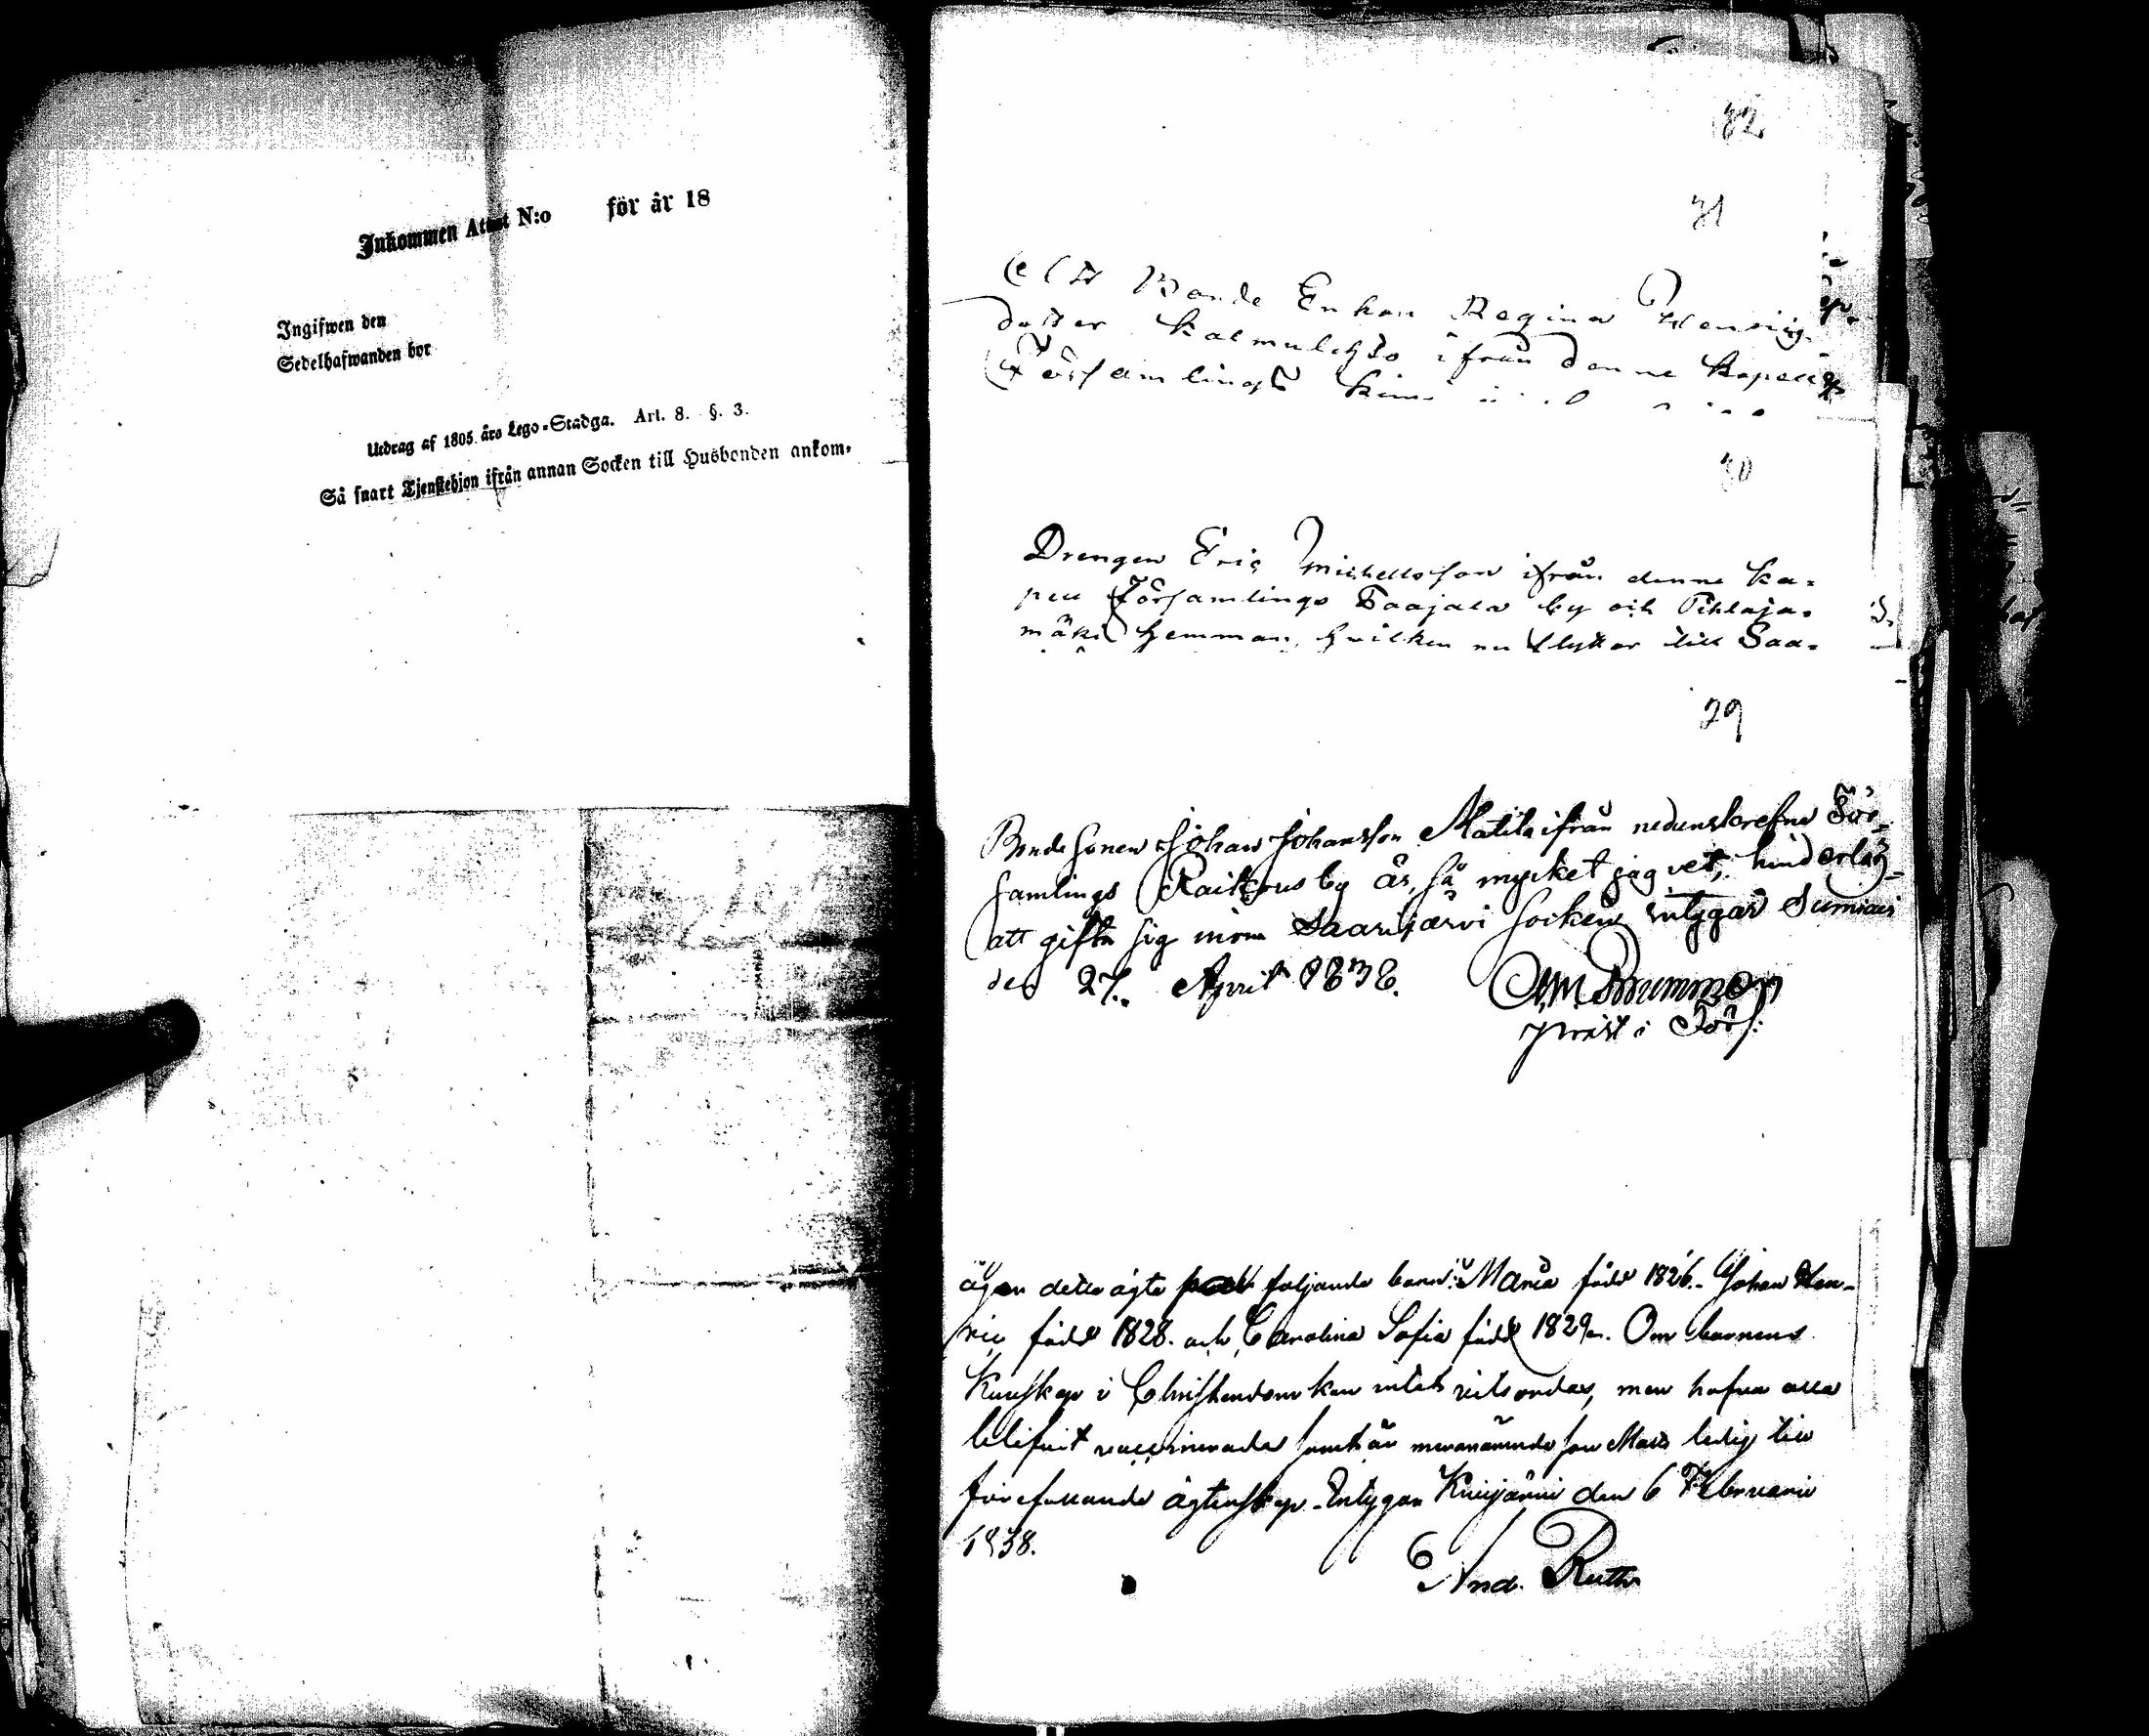 Inkommen Attest N:o för år 18
Ingifwen den
Sedelhafwanden bor
Utdrag af 1805 års Lego-Stadga. Art. 8. §. 3.
Så snart Tjenstehjon ifrån annan Socken till Husbonden ankom-
32
31
Bonde Enkan Regina Henrics
dotter Kalmulahto ifrån denne Kapell
Församlings
30
Drengen Eric Michellsson ifrån denne Ka-
pell Församlings Taajala by och Pihlaja-
mäki hemman, hvilken nu flyttar till Saa-
29
Bondesonen Johan Johansson Matila ifrån nedanskrefne För-
samlings Raitkous by är, så mycket jag vet, hinderlös
att gifta sig inom Saarijärvi socken intygar Sumiais
den 27. April 1838.
Prest i Förs:
ägen detta ägta följande barn: Maria född 1826. Johan Hen-
ric född 1828. och Carolina Sofia född 1829. Om barnens
Kunskap i Christendom kan intet vitsordas, men hafva alla
blifvit vaccinerade samt är ledig till
förefallande ägtenskap. Intygar Kivijärvi den 6 Februarii
1838.
And. Ruth